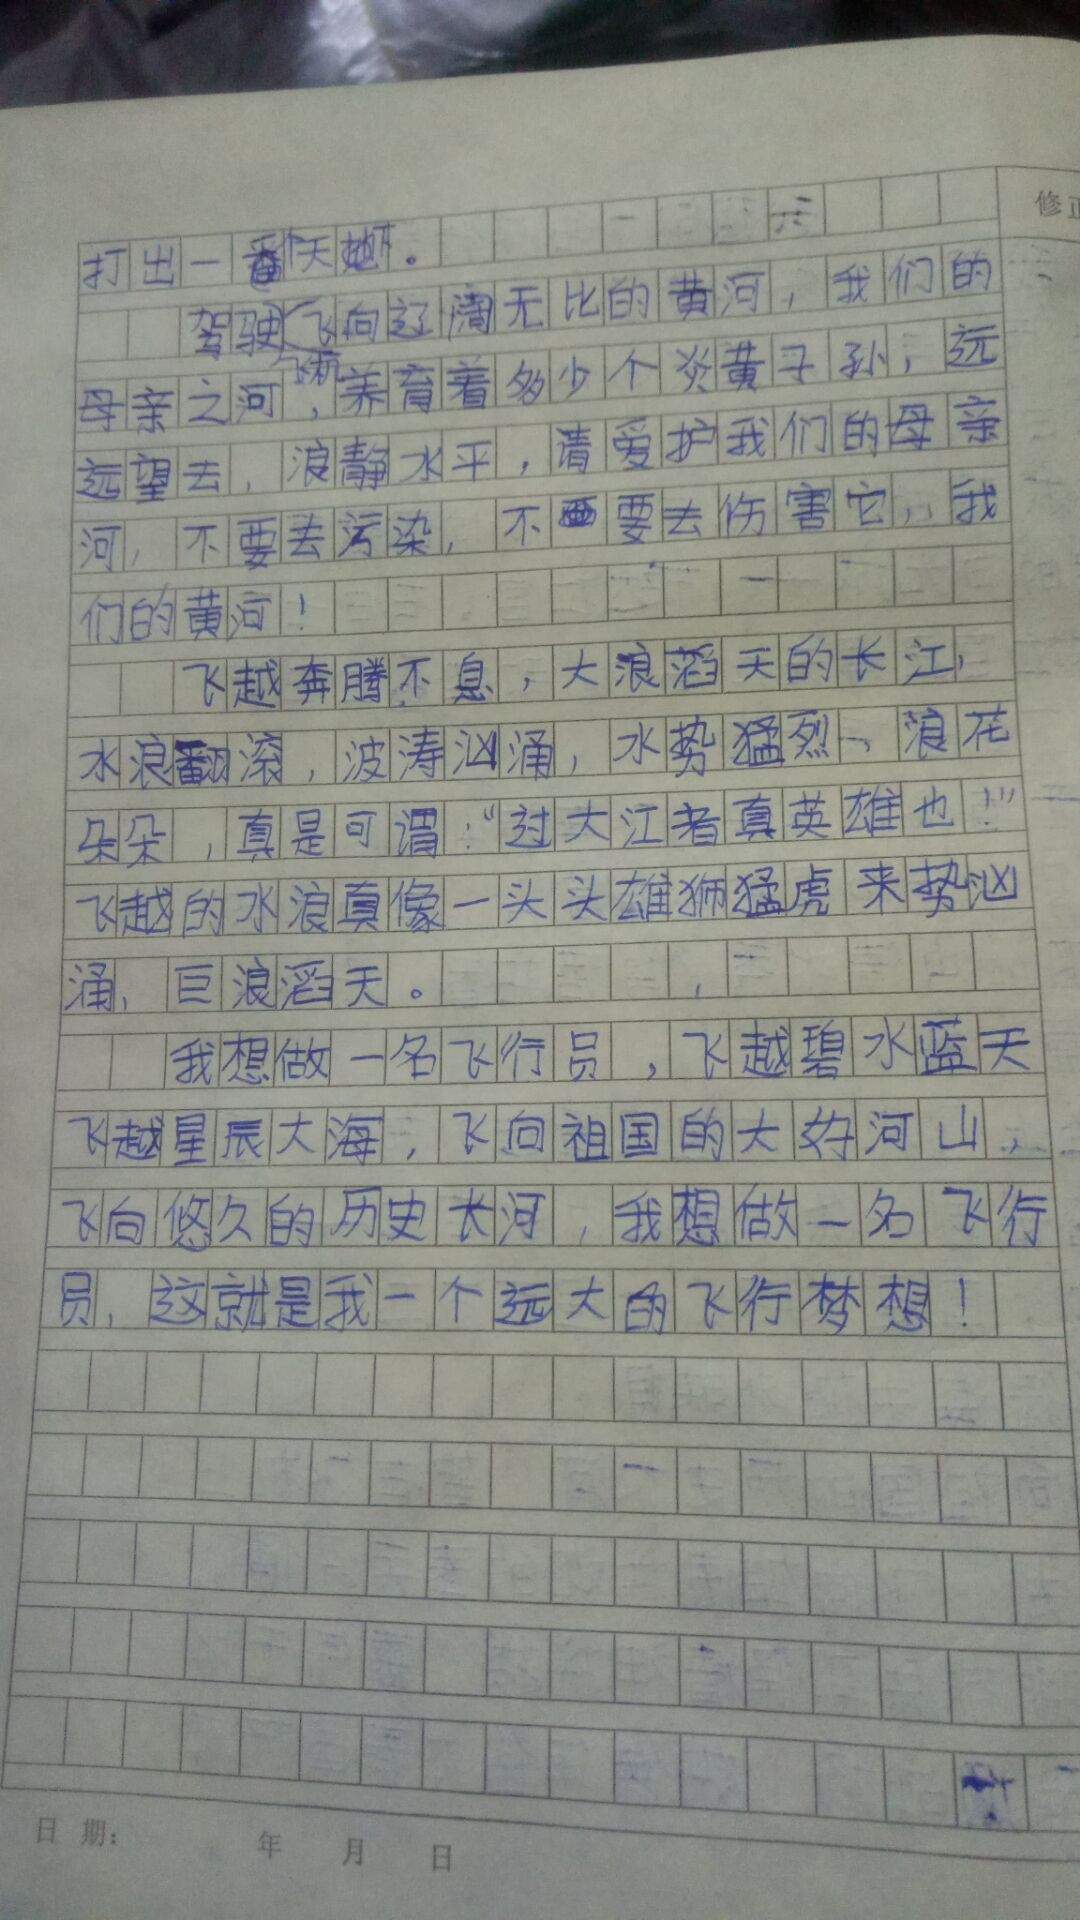 修正
打出一番天地。
驾驶飞机飞向辽阔无比的黄河，我们的
母亲之河，养育着多少个炎黄子孙，远
远望去，浪静水平，请爱护我们的母亲
河，不要去污染，不要去伤害它，我
们的黄河！
飞越奔腾不息，大浪滔天的长江，
水浪翻滚，波涛汹涌，水势猛烈，浪花
朵朵，真是可谓！“过大江者真英雄也！”
飞越的水浪真像一头头雄狮猛虎来势汹
涌，巨浪滔天。
我想做一名飞行员，飞越碧水蓝天
飞越星辰大海，飞向祖国的大好河山，
飞向悠久的历史长河，我想做一名飞行
员，这就是我一个远大的飞行梦想！
日期： 年 月 日